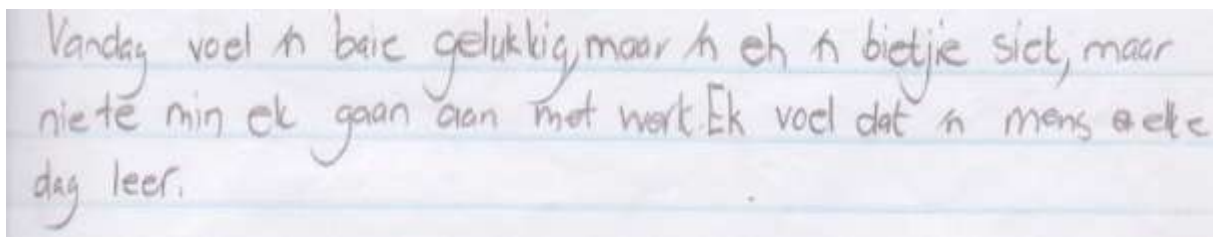 Vandag voel 'n baie gelukkig, maar 'n eh 'n bietjie siek, maar
nie te min ek gaan aan met werk. Ek voel dat 'n mens elke
dag leer.